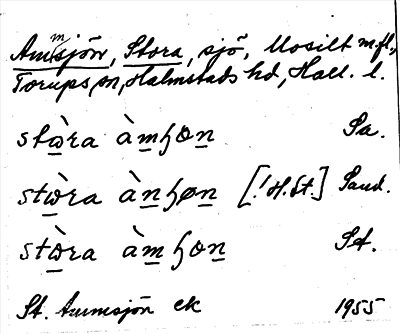 Amsjön, Stora, sjö, Mosilt m.fl.,
Torups sn, Halmstads hd, Hall. l.
stὼra àmɧơn Sa.
stὼra ànɧøn [! H.St.] Sand.
stὼra àmɧơn St.
St. Ammsjön ek 1955